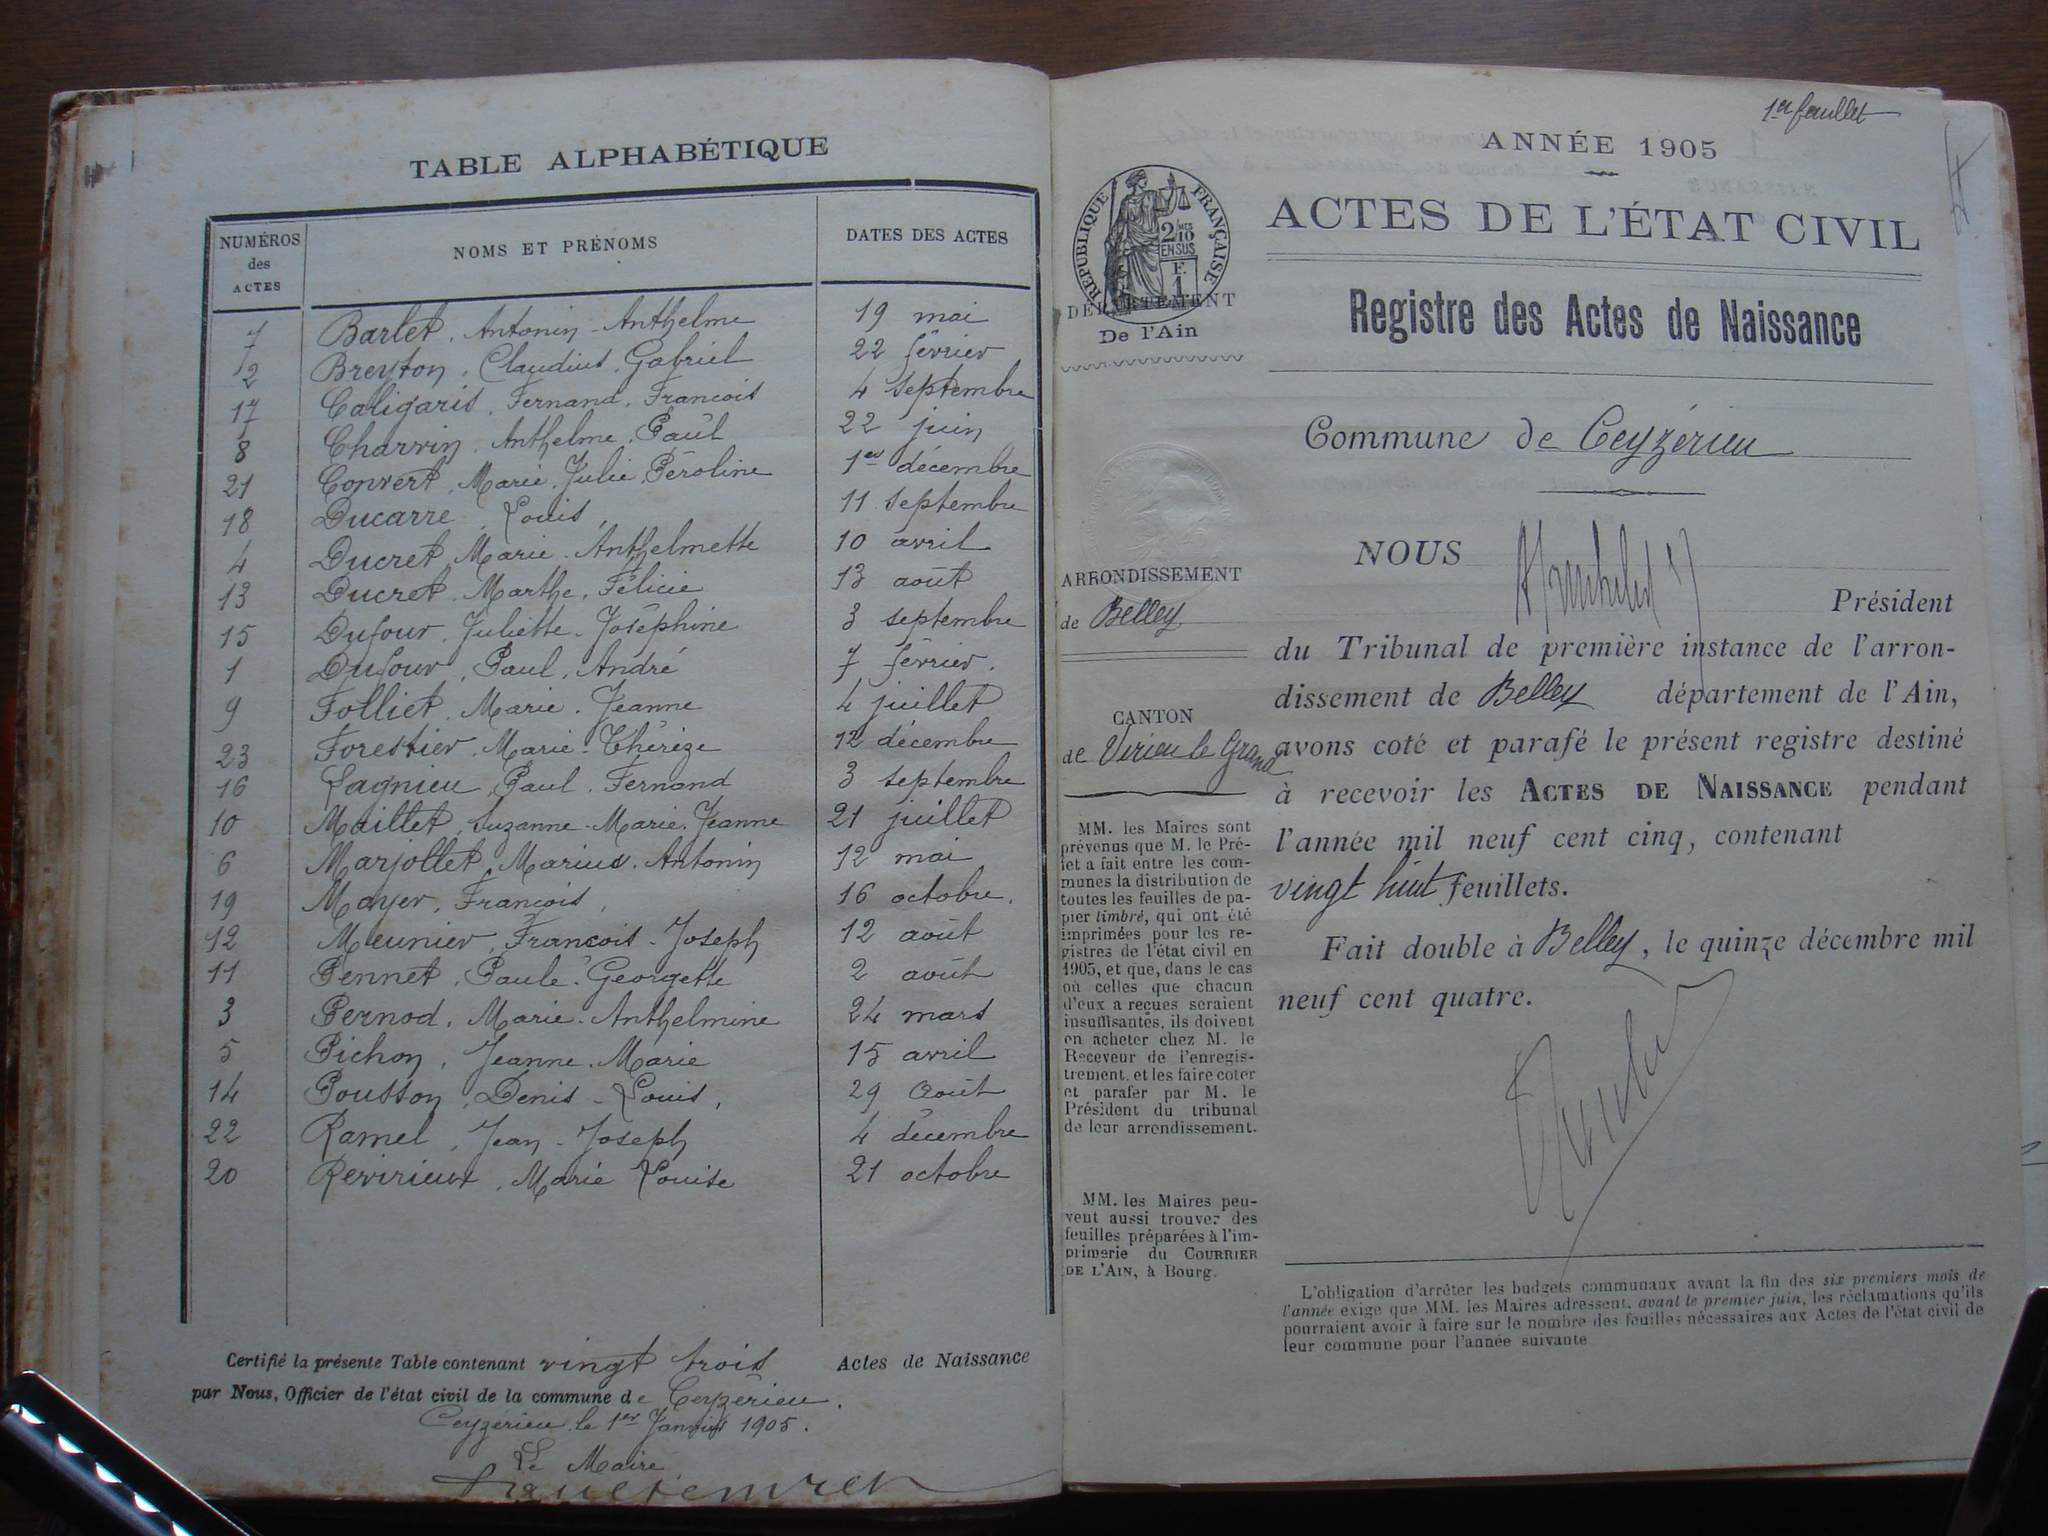 TABLE ALPHABÉTIQUE
NUMÉROS des ACTES NOMS ET PRÉNOMS DATES DES ACTES
7 Barlet. Antonin-Anthelme 19 mai
2 Breyton, Claudius, Gabriel 22 février
17 Caligaris, Fernand, François 4 septembre
8 Charvin. Anthelme, Paul 22 juin
21 Convert, Marie, Julie, Péroline 1er décembre
18 Ducarre, Louis, 11 septembre
4 Ducret, Marie-Anthelmette 10 avril
13 Ducret, Marthe, Félicie 13 août
15 Dufour, Juliette-Joséphine 3 septembre
1 Dufour, Paul, André 7 février.
9 Folliet. Marie. Jeanne 4 juillet
23 Forestier. Marie-Thérèze 12 décembre
16 Lagnieu, Paul. Fernand 3 septembre
10 Maillet, Suzanne-Marie, Jeanne 21 juillet
6 Marjollet, Marius. Antonin 12 mai
19 Mayer, François, 16 octobre.
12 Meunier, François-Joseph 12 août
11 Pennet, Paule-Georgette 2 août
3 Pernod, Marie-Anthelmine 24 mars
5 Pichon, Jeanne. Marie 15 avril
14 Pousson, Denis-Louis, 29 Août
22 Ramel, Jean-Joseph 4 décembre
20 Revirieux, Marie Louise 21 octobre
Certifié la présente Table contenant vingt trois Actes de Naissance
par Nous, Officier de l'état civil de la commune de Ceyzérieu.
Ceyzérieu le 1er Janvier 1905.
Le Maire
1er feuillet
ANNÉE 1905
ACTES DE L'ÉTAT CIVIL
RÉPUBLIQUE FRANÇAISE
2/10 EN SUS
F. 1
DÉPARTEMENT
De l'Ain
Registre des Actes de Naissance
Commune de Ceyzérieu
ARRONDISSEMENT
de Belley
CANTON
de Virieu le Grand
MM. les Maires sont
prévenus que M. le Pré-
fet a fait entre les com-
munes la distribution de
toutes les feuilles de pa-
pier timbré, qui ont été
imprimées pour les re-
gistres de l'état civil en
1905, et que, dans le cas
où celles que chacun
d'eux a reçues seraient
insuffisantes, ils doivent
en acheter chez M. le
Receveur de l'enregis-
trement, et les faire coter
et parafer par M. le
Président du tribunal
de leur arrondissement.
MM. les Maires peu-
vent aussi trouver des
feuilles préparées à l'im-
primerie du COURRIER
DE L'AIN, à Bourg.
NOUS
Président
du Tribunal de première instance de l'arron-
dissement de Belley département de l'Ain,
avons coté et parafé le présent registre destiné
à recevoir les ACTES DE NAISSANCE pendant
l'année mil neuf cent cinq, contenant
vingt huit feuillets.
Fait double à Belley, le quinze décembre mil
neuf cent quatre.
L'obligation d'arrêter les budgets communaux avant la fin des six premiers mois de
l'année exige que MM. les Maires adressent, avant le premier juin, les réclamations qu'ils
pourraient avoir à faire sur le nombre des feuilles nécessaires aux Actes de l'état civil de
leur commune pour l'année suivante